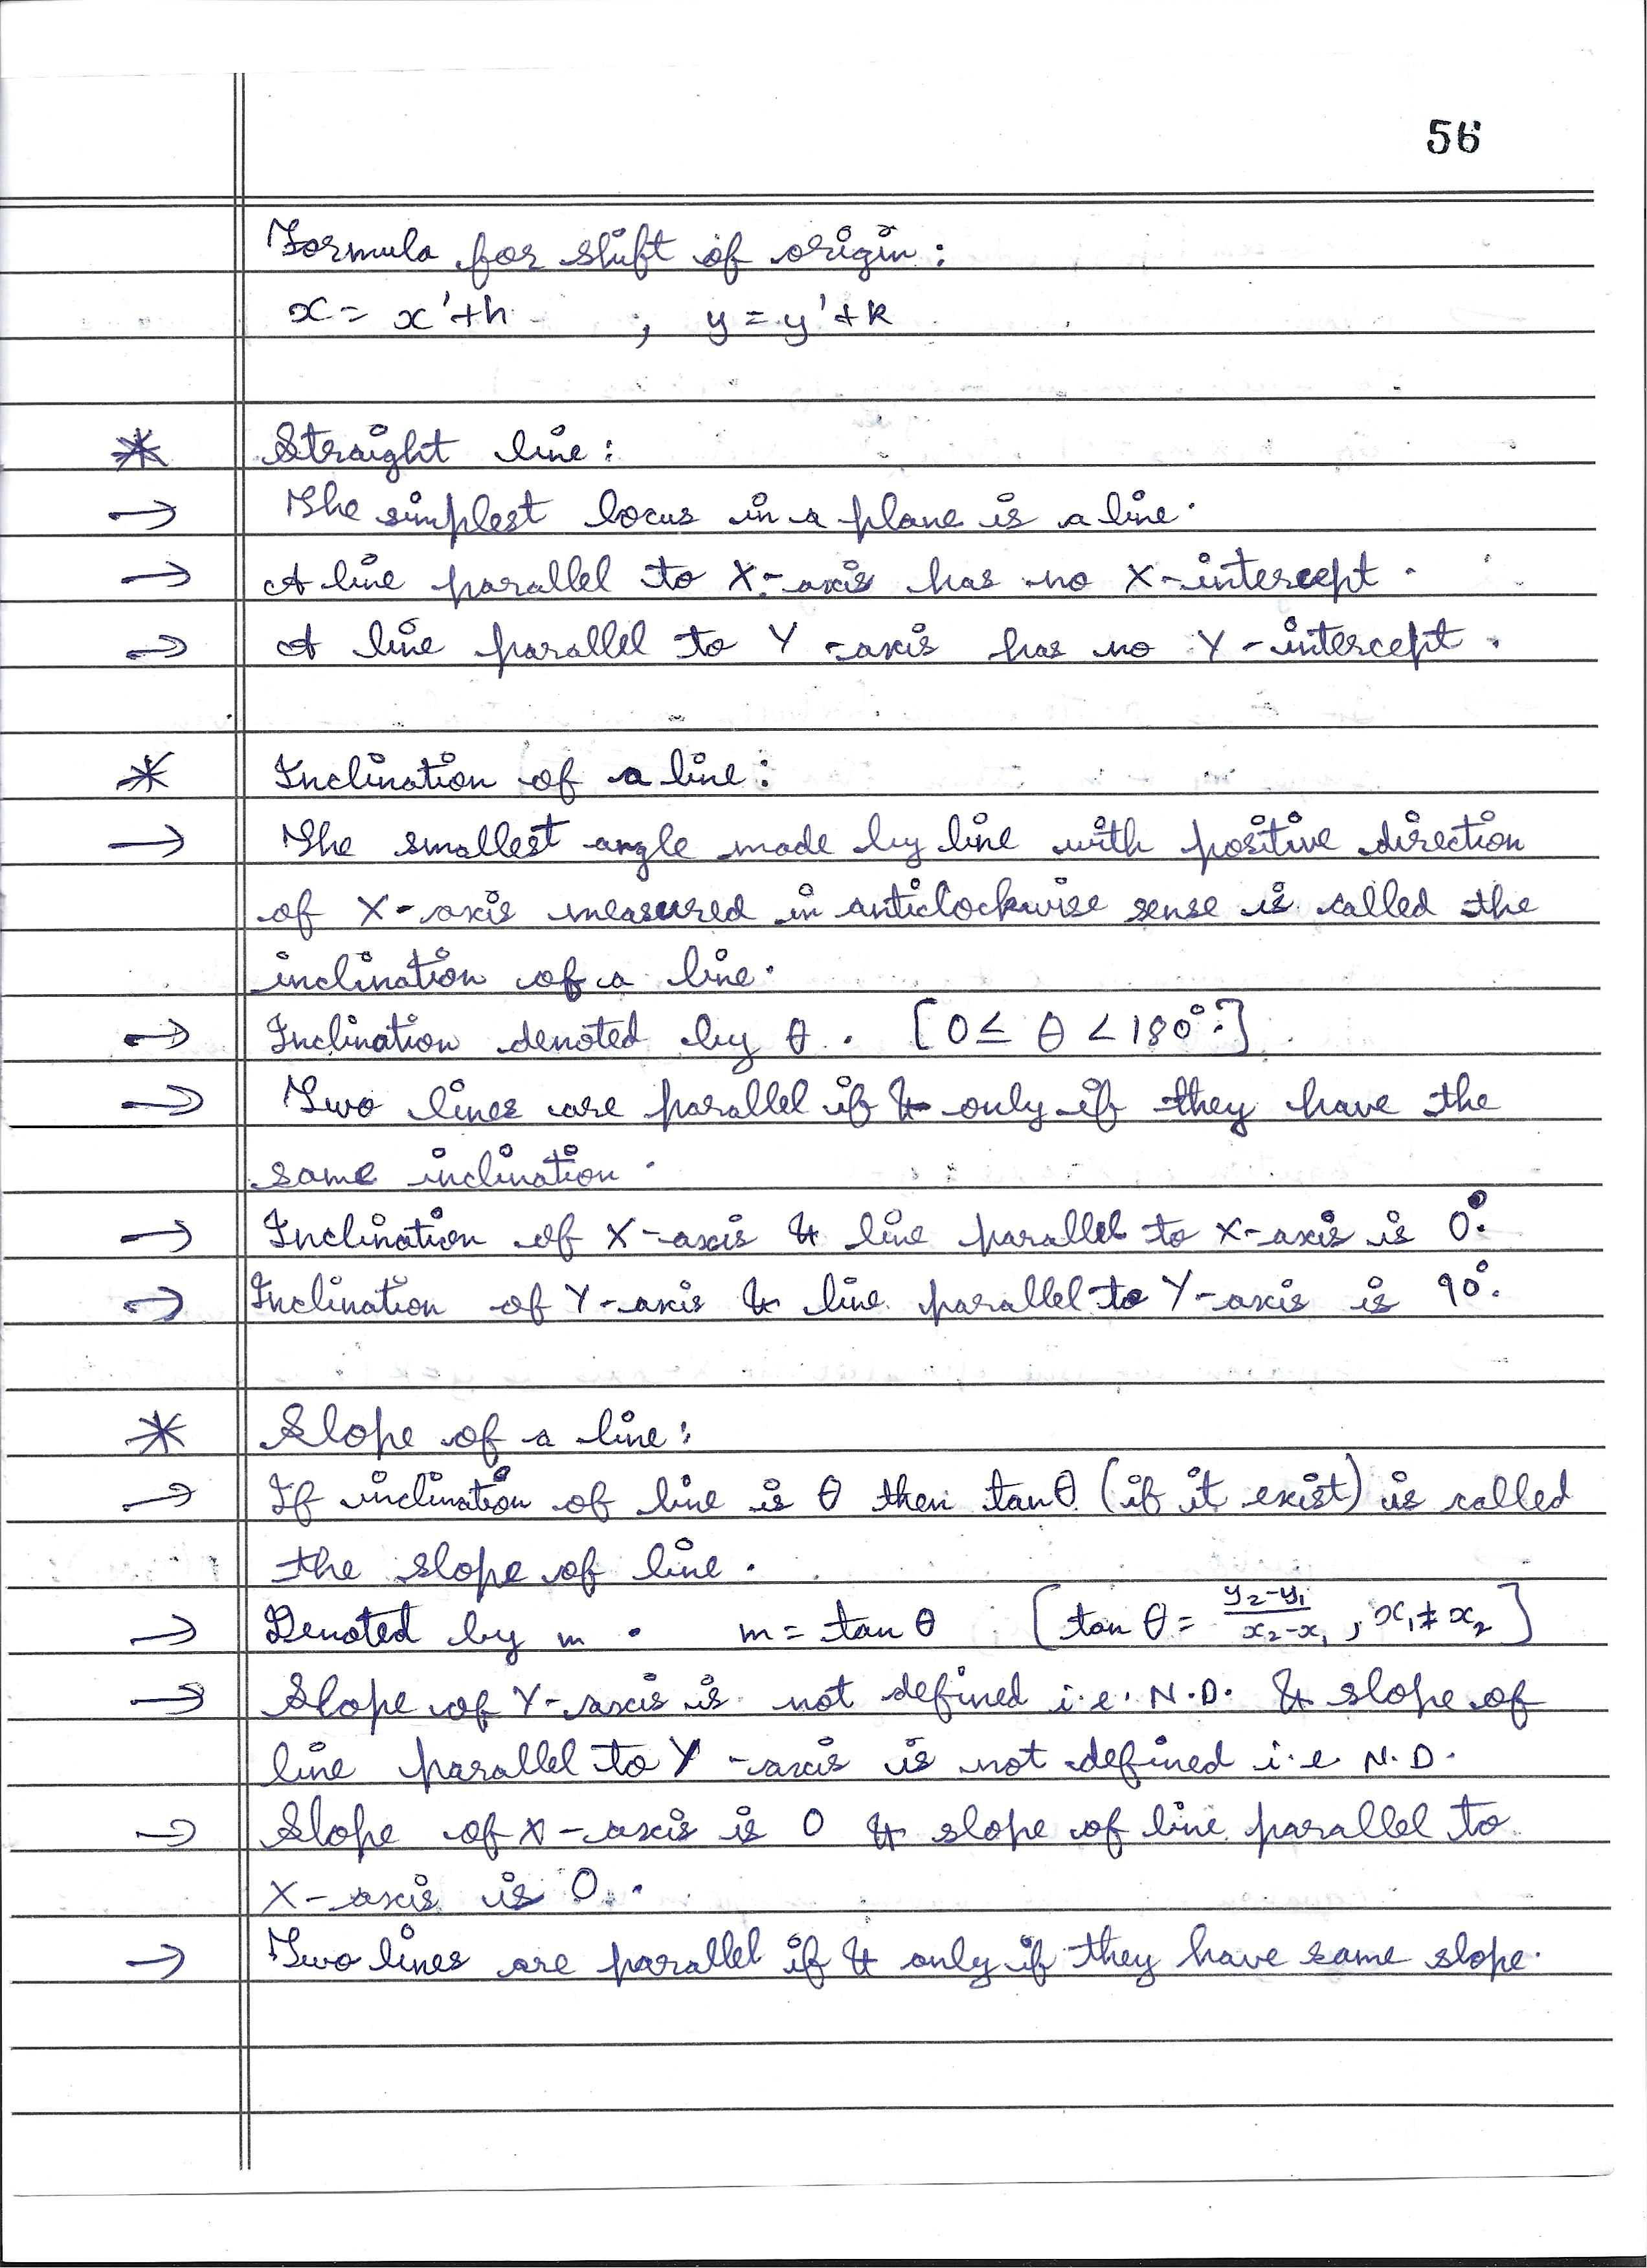 56
Formula for shift of origin:
x = x'+h ; y = y'+k
* Straight line:
→ The simplest locus in a plane is a line.
→ A line parallel to X-axis has no X-intercept.
→ A line parallel to Y-axis has no Y-intercept.
* Inclination of a line:
→ The smallest angle made by line with positive direction
of X-axis measured in anticlockwise sense is called the
inclination of a line.
→ Inclination denoted by θ. [0 ≤ θ < 180°.]
→ Two lines are parallel if & only if they have the
same inclination.
→ Inclination of X-axis & line parallel to X-axis is 0°.
→ Inclination of Y-axis & line parallel to Y-axis is 90°.
* Slope of a line:
→ If inclination of line is θ then tanθ (if it exist) is called
the slope of line.
→ Denoted by m. m = tan θ [tan θ = (y₂-y₁)/(x₂-x₁), x₁ ≠ x₂]
→ Slope of Y-axis is not defined i.e. N.D. & slope of
line parallel to Y-axis is not defined i.e N.D.
→ Slope of X-axis is 0 & slope of line parallel to
X-axis is 0.
→ Two lines are parallel if & only if they have same slope.